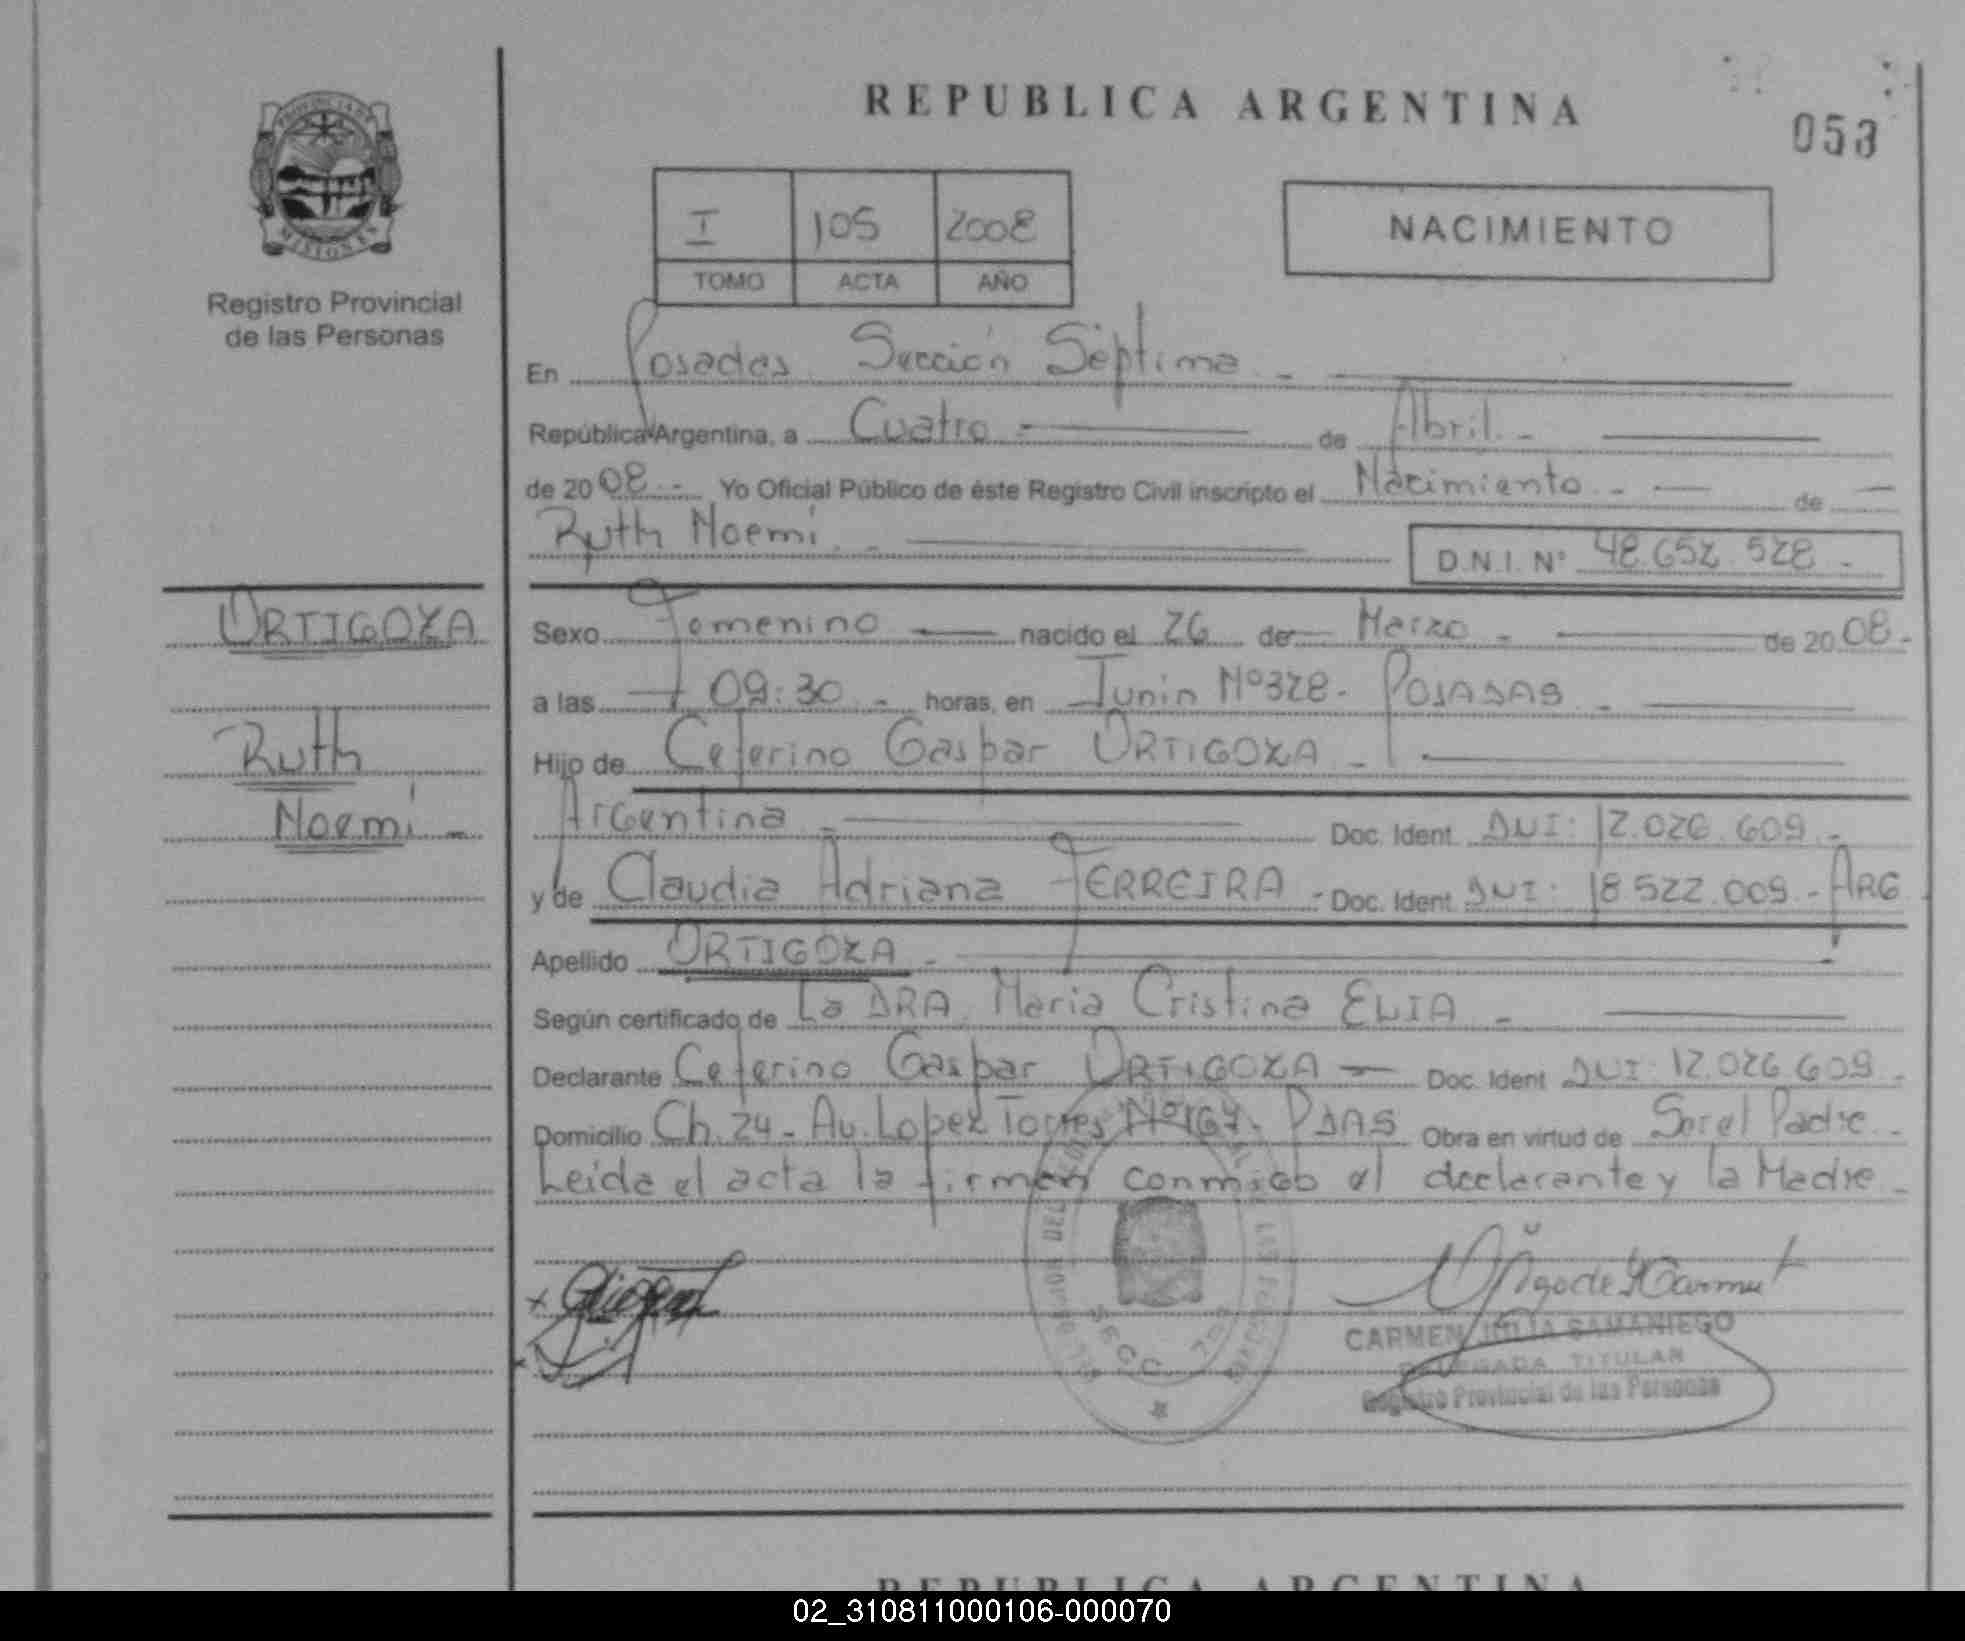 REPUBLICA ARGENTINA
053
PROVINCIA DE
MISIONES
Registro Provincial
de las Personas
I 105 2008
TOMO ACTA AÑO
NACIMIENTO
En Posadas Sección Séptima. -
República Argentina, a Cuatro - de Abril. -
de 2008. - Yo Oficial Público de éste Registro Civil inscripto el Nacimiento. - de
Ruth Noemí. - D.N.I. Nº 48.652.528 -
ORTIGOZA
Ruth
Noemí -
Sexo Femenino nacido el 26 de Marzo - de 2008. -
a las 09:30. - horas, en Junin Nº 328. POSADAS. -
Hijo de Ceferino Gaspar ORTIGOZA -
Argentina - Doc. Ident. DNI: 12.026.609. -
y de Claudia Adriana FERREIRA - Doc. Ident. DNI: 18.522.009. - ARG
Apellido ORTIGOZA -
Según certificado de La DRA. Maria Cristina ELIA -
Declarante Ceferino Gaspar ORTIGOZA - Doc. Ident DNI: 12.026.609 -
Domicilio Ch. 24 - Av. Lopez Torres Nº PDAS Obra en virtud de Ser el Padre -
Leida el acta la firman conmigo el declarante y la Madre -
SECC.
CARMEN JULIA SAMANIEGO
DELEGADA TITULAR
Registro Provincial de las Personas
REPUBLICA ARGENTINA
02_310811000106-000070